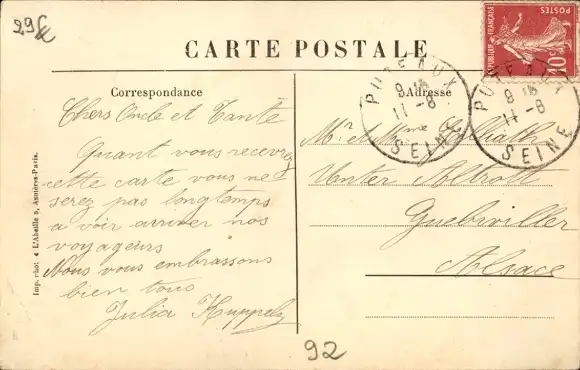 29
RÉPUBLIQUE FRANÇAISE
POSTES
10c
CARTE POSTALE
PUTEAUX
11-8
SEINE
PUTEAUX
11-8
SEINE
Correspondance
Adresse
Chers Oncle et Tante
Quant vous recevrez
cette carte vous ne
serez pas longtemps
a voir arriver nos
voyageurs
Nous vous embrassons
bien tous
Julia
Mr et Mme
Unter
Guebwiller
Alsace
Imp. phot. « L'Abeille », Asnières-Paris.
92